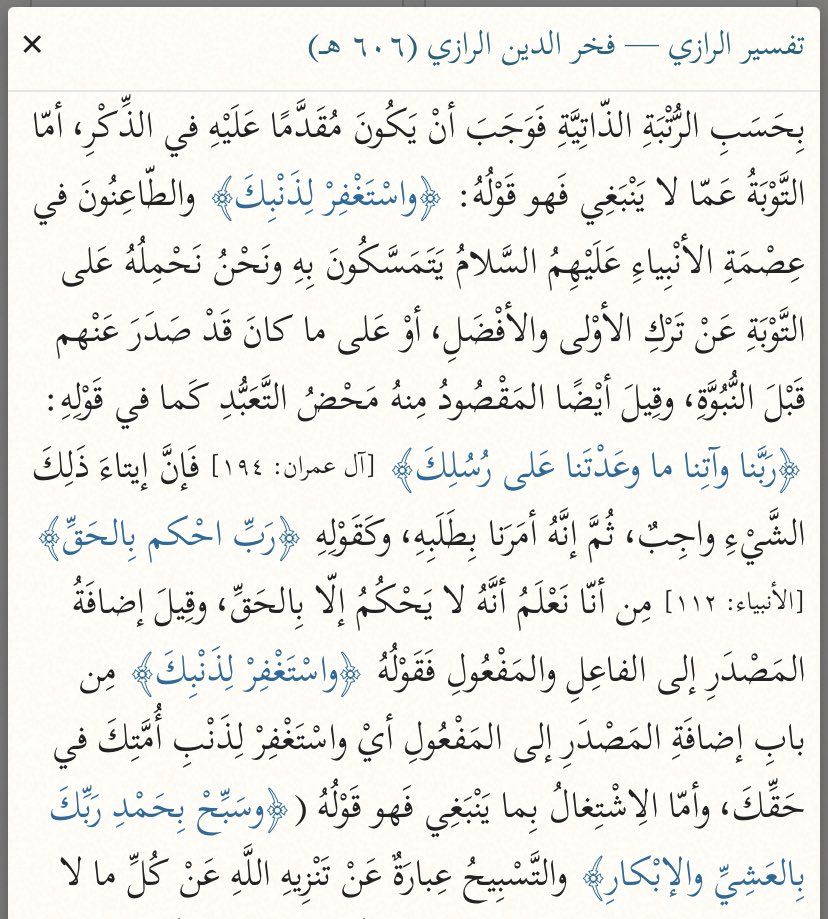 تفسير الرازي — فخر الدين الرازي (٦٠٦ هـ) ×
بِحَسَبِ الرُّتْبَةِ الذّاتِيَّةِ فَوَجَبَ أنْ يَكُونَ مُقَدَّمًا عَلَيْهِ في الذِّكْرِ، أمّا
التَّوْبَةُ عَمّا لا يَنْبَغِي فَهو قَوْلُهُ: ﴿واسْتَغْفِرْ لِذَنْبِكَ﴾ والطّاعِنُونَ في
عِصْمَةِ الأنْبِياءِ عَلَيْهِمُ السَّلامُ يَتَمَسَّكُونَ بِهِ ونَحْنُ نَحْمِلُهُ عَلى
التَّوْبَةِ عَنْ تَرْكِ الأوْلى والأفْضَلِ، أوْ عَلى ما كانَ قَدْ صَدَرَ عَنْهم
قَبْلَ النُّبُوَّةِ، وقِيلَ أيْضًا المَقْصُودُ مِنهُ مَحْضُ التَّعَبُّدِ كَما في قَوْلِهِ:
﴿رَبَّنا وآتِنا ما وعَدْتَنا عَلى رُسُلِكَ﴾ [آل عمران: ١٩٤] فَإنَّ إيتاءَ ذَلِكَ
الشَّيْءِ واجِبٌ، ثُمَّ إنَّهُ أمَرَنا بِطَلَبِهِ، وكَقَوْلِهِ ﴿رَبِّ احْكم بِالحَقِّ﴾
[الأنبياء: ١١٢] مِن أنّا نَعْلَمُ أنَّهُ لا يَحْكُمُ إلّا بِالحَقِّ، وقِيلَ إضافَةُ
المَصْدَرِ إلى الفاعِلِ والمَفْعُولِ فَقَوْلُهُ ﴿واسْتَغْفِرْ لِذَنْبِكَ﴾ مِن
بابِ إضافَةِ المَصْدَرِ إلى المَفْعُولِ أيْ واسْتَغْفِرْ لِذَنْبِ أُمَّتِكَ في
حَقِّكَ، وأمّا الِاشْتِغالُ بِما يَنْبَغِي فَهو قَوْلُهُ ( ﴿وسَبِّحْ بِحَمْدِ رَبِّكَ
بِالعَشِيِّ والإبْكارِ﴾ والتَّسْبِيحُ عِبارَةٌ عَنْ تَنْزِيهِ اللَّهِ عَنْ كُلِّ ما لا